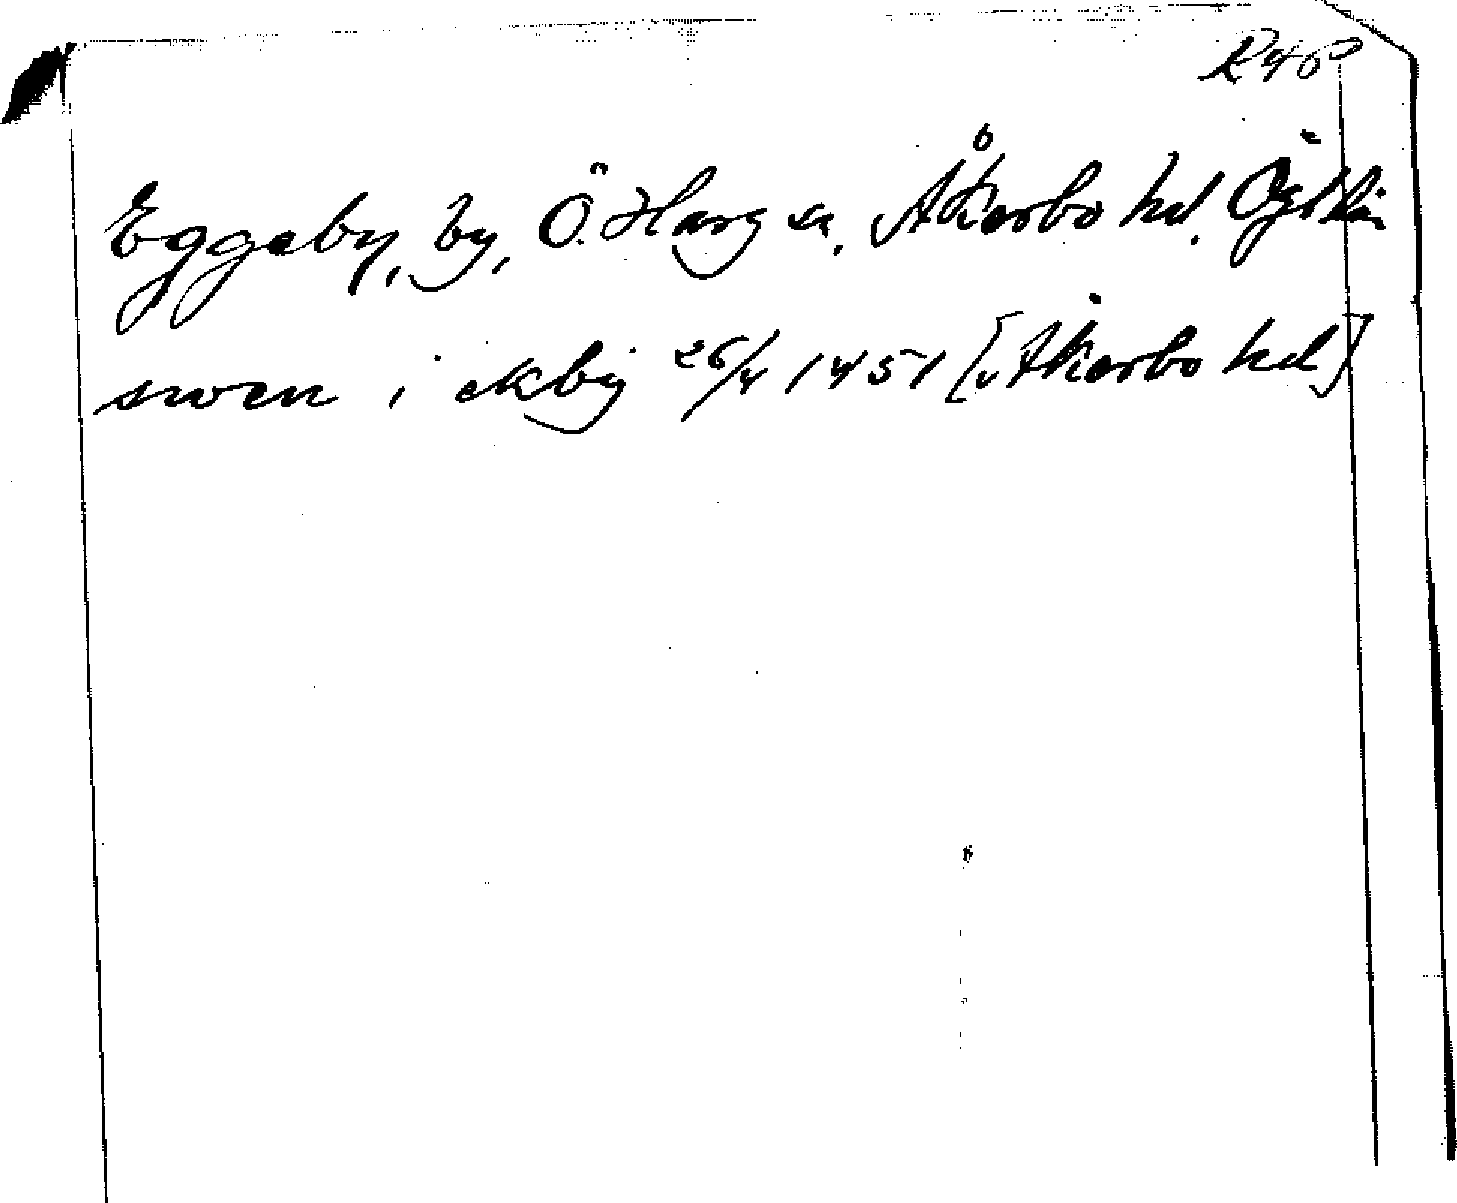 R40
Eggeby, by, Ö. Harg sn, Åkerbo hd. Ögötl.
swen i ekby 26/4 1451 [Åkerbo hd]